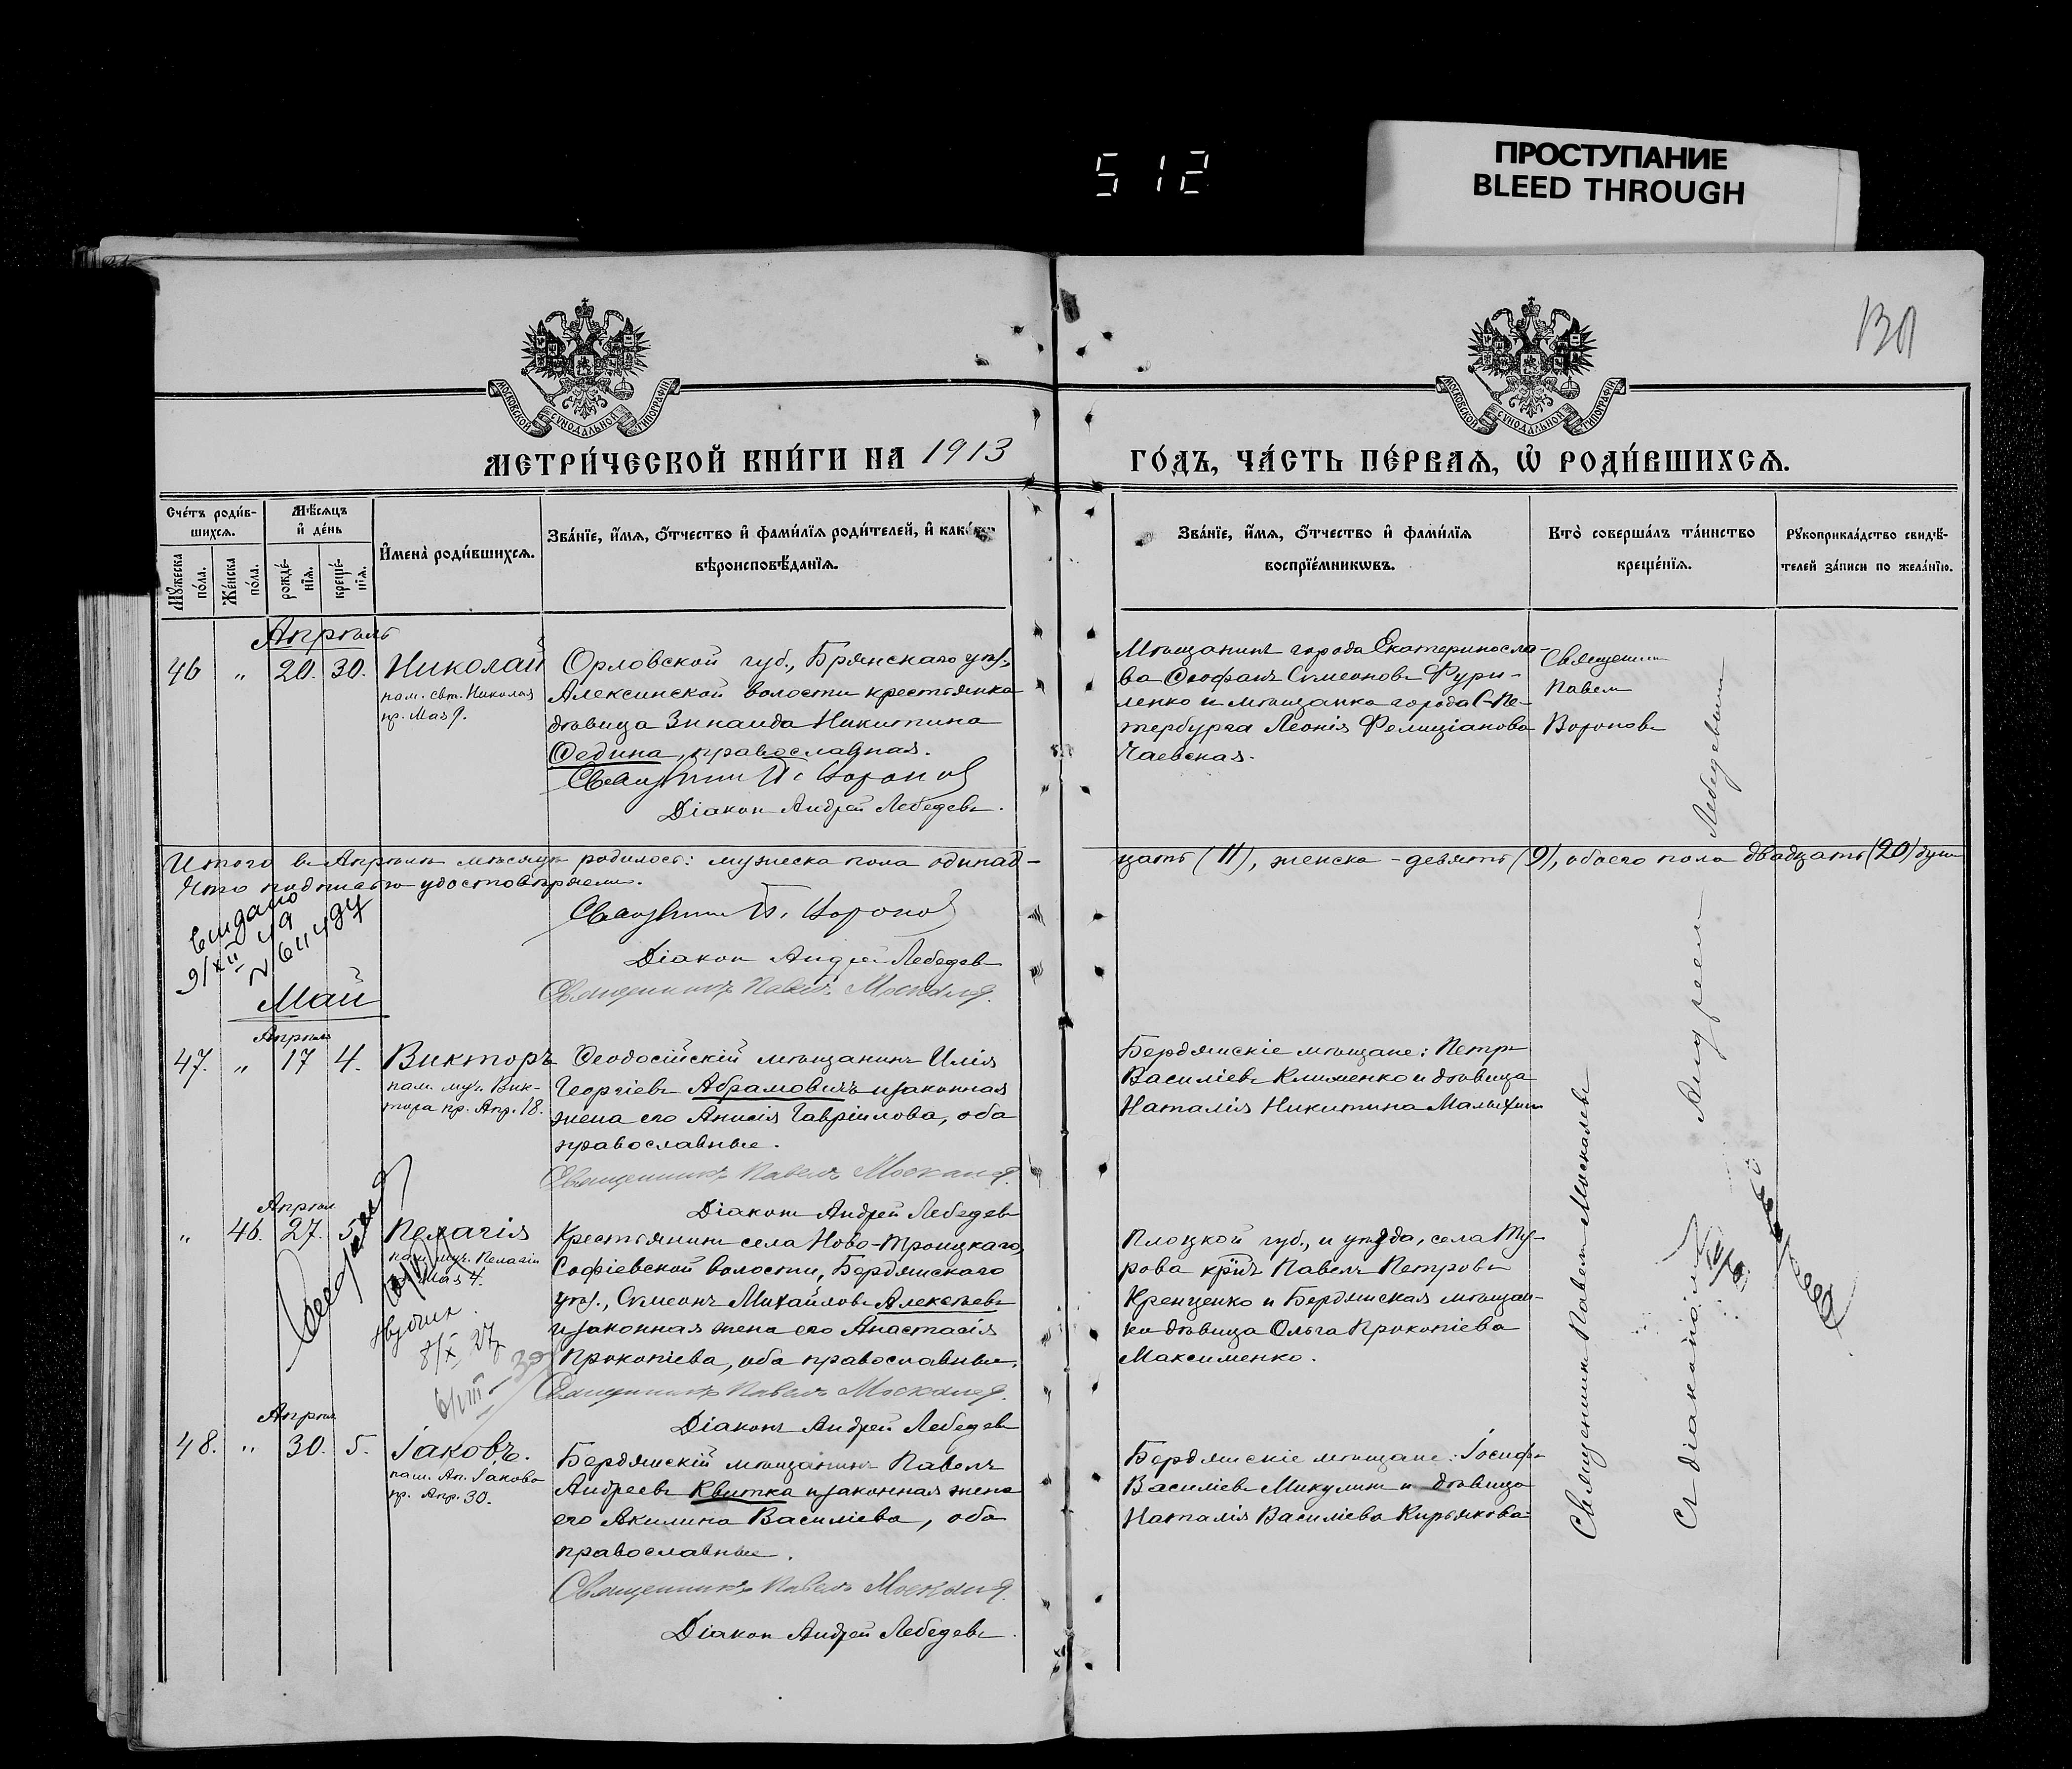 512
ПРОСТУПАНИЕ
BLEED THROUGH
МОСКОВСКОЙ СѴНОДАЛЬНОЙ ТИПОГРАФІИ
МОСКОВСКОЙ СѴНОДАЛЬНОЙ ТИПОГРАФІИ
МЕТРИ́ЧЕСКОЙ КНИ́ГИ НА 1913
ГО́ДЪ, ЧА́СТЬ ПЕ́РВАѦ, Ѡ҆ РОДИ́ВШИХСѦ.
Сче́тъ роди́в-
шихсѧ.
Мꙋ́жеска по́ла.
Же́нска по́ла.
Мѣ́сѧцъ
и҆ де́нь
рожде́-
нїѧ.
креще́-
нїѧ.
И҆мена̀ роди́вшихсѧ.
Зва́нїе, и҆́мѧ, ѻ҆́тчество и҆ фами́лїѧ роди́телей, и҆ како́гѡ
вѣроисповѣ́данїѧ.
Зва́нїе, и҆́мѧ, ѻ҆́тчество и҆ фами́лїѧ
воспрїе́мникѡвъ.
Кто̀ соверша́лъ та́инство
креще́нїѧ.
Рꙋкоприкла́дство свидѣ́-
телей за́писи по жела́нїю.
Апрѣль
46 „ 20. 30. Николай
пам. свт. Николая
пр. Мая 9.
Орловской губ., Брянскаго уѣз.,
Алексинской волости крестьянка
дѣвица Зинаида Никитина
Ѳедина, православная.
Священникъ П. Вороновъ
Діаконъ Андрей Лебедевъ.
Мѣщанинъ города Екатериносла-
ва Ѳеофанъ Симеоновъ Фури-
ленко и мѣщанка города С-Пе-
тербурга Леонія Фелиціанова
Чаевская.
Священникъ
Павелъ
Вороновъ
Итого въ Апрѣлѣ мѣсяцѣ родилось: мужеска пола одинад-
цать (11), женска - девять (9), обоего пола двадцать (20) душъ
Что подписью удостовѣряемъ.
Священникъ П. Вороновъ
Діаконъ Андрей Лебедевъ
Священникъ Павелъ Москалевъ.
Видано
9/XII 49
Май
Апрѣля
47. „ 17 4. Викторъ
пам. муч. Вик-
тора пр. Апр. 18.
Ѳеодосійскій мѣщанинъ Илія
Георгіевъ Абрамовичъ и законная
жена его Анисія Гавріилова, оба
православные.
Священникъ Павелъ Москалевъ.
Діаконъ Андрей Лебедевъ
Бердянскіе мѣщане: Петръ
Василіевъ Клименко и дѣвица
Наталія Никитина Малыхина
Апрѣля
„ 46. 27. 5. Пелагія
пам. муч. Пелагіи
Мая 4.
8/X 27
Крестьянинъ села Ново-Троицкаго,
Софіевской волости, Бердянскаго
уѣз., Симеонъ Михайловъ Алексѣевъ
и законная жена его Анастасія
Прокопіева, оба православные.
Священникъ Павелъ Москалевъ.
Діаконъ Андрей Лебедевъ
Плоцкой губ., и уѣзда, села Ту-
рова кр҃нъ Павелъ Петровъ
Кренценко и Бердянская мѣщан-
ка дѣвица Ольга Прокопіева
Максименко.
Апрѣля
48. „ 30. 5. Іаковъ.
пам. Ап. Іакова
пр. Апр. 30.
Бердянскій мѣщанинъ Павелъ
Андреевъ Квитка и законная жена
его Акилина Василіева, оба
православные.
Священникъ Павелъ Москалевъ.
Діаконъ Андрей Лебедевъ.
Бердянскіе мѣщане: Іосифъ
Василіевъ Микулинъ и дѣвица
Наталія Василіева Кирьякова
Священникъ Павелъ Москалевъ
Съ діакономъ Андреемъ Лебедевымъ